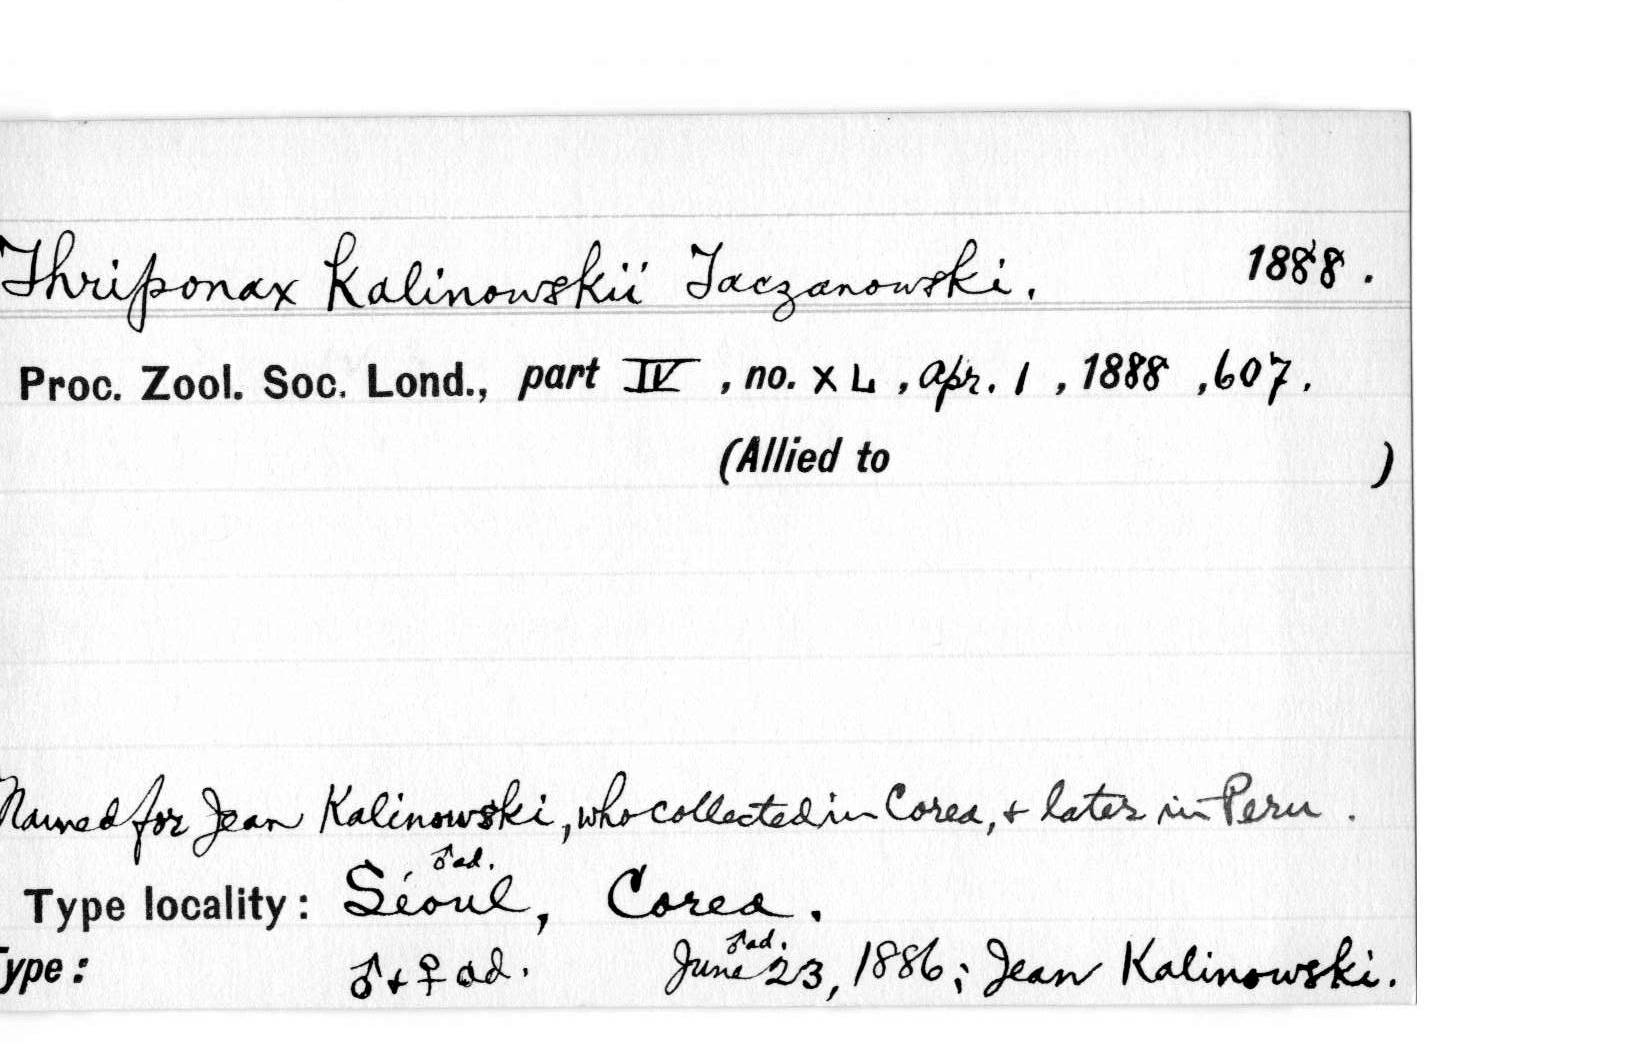 Thriponax Kalinowskii Taczanowski. 1888.
Proc. Zool. Soc. Lond., part IV, no. XL, Apr. 1, 1888, 607.
(Allied to )
Named for Jean Kalinowski, who collected in Corea, + later in Peru.
♂ad.
Type locality: Séoul, Corea.
♂ad.
Type: ♂+♀ ad. June 23, 1886; Jean Kalinowski.